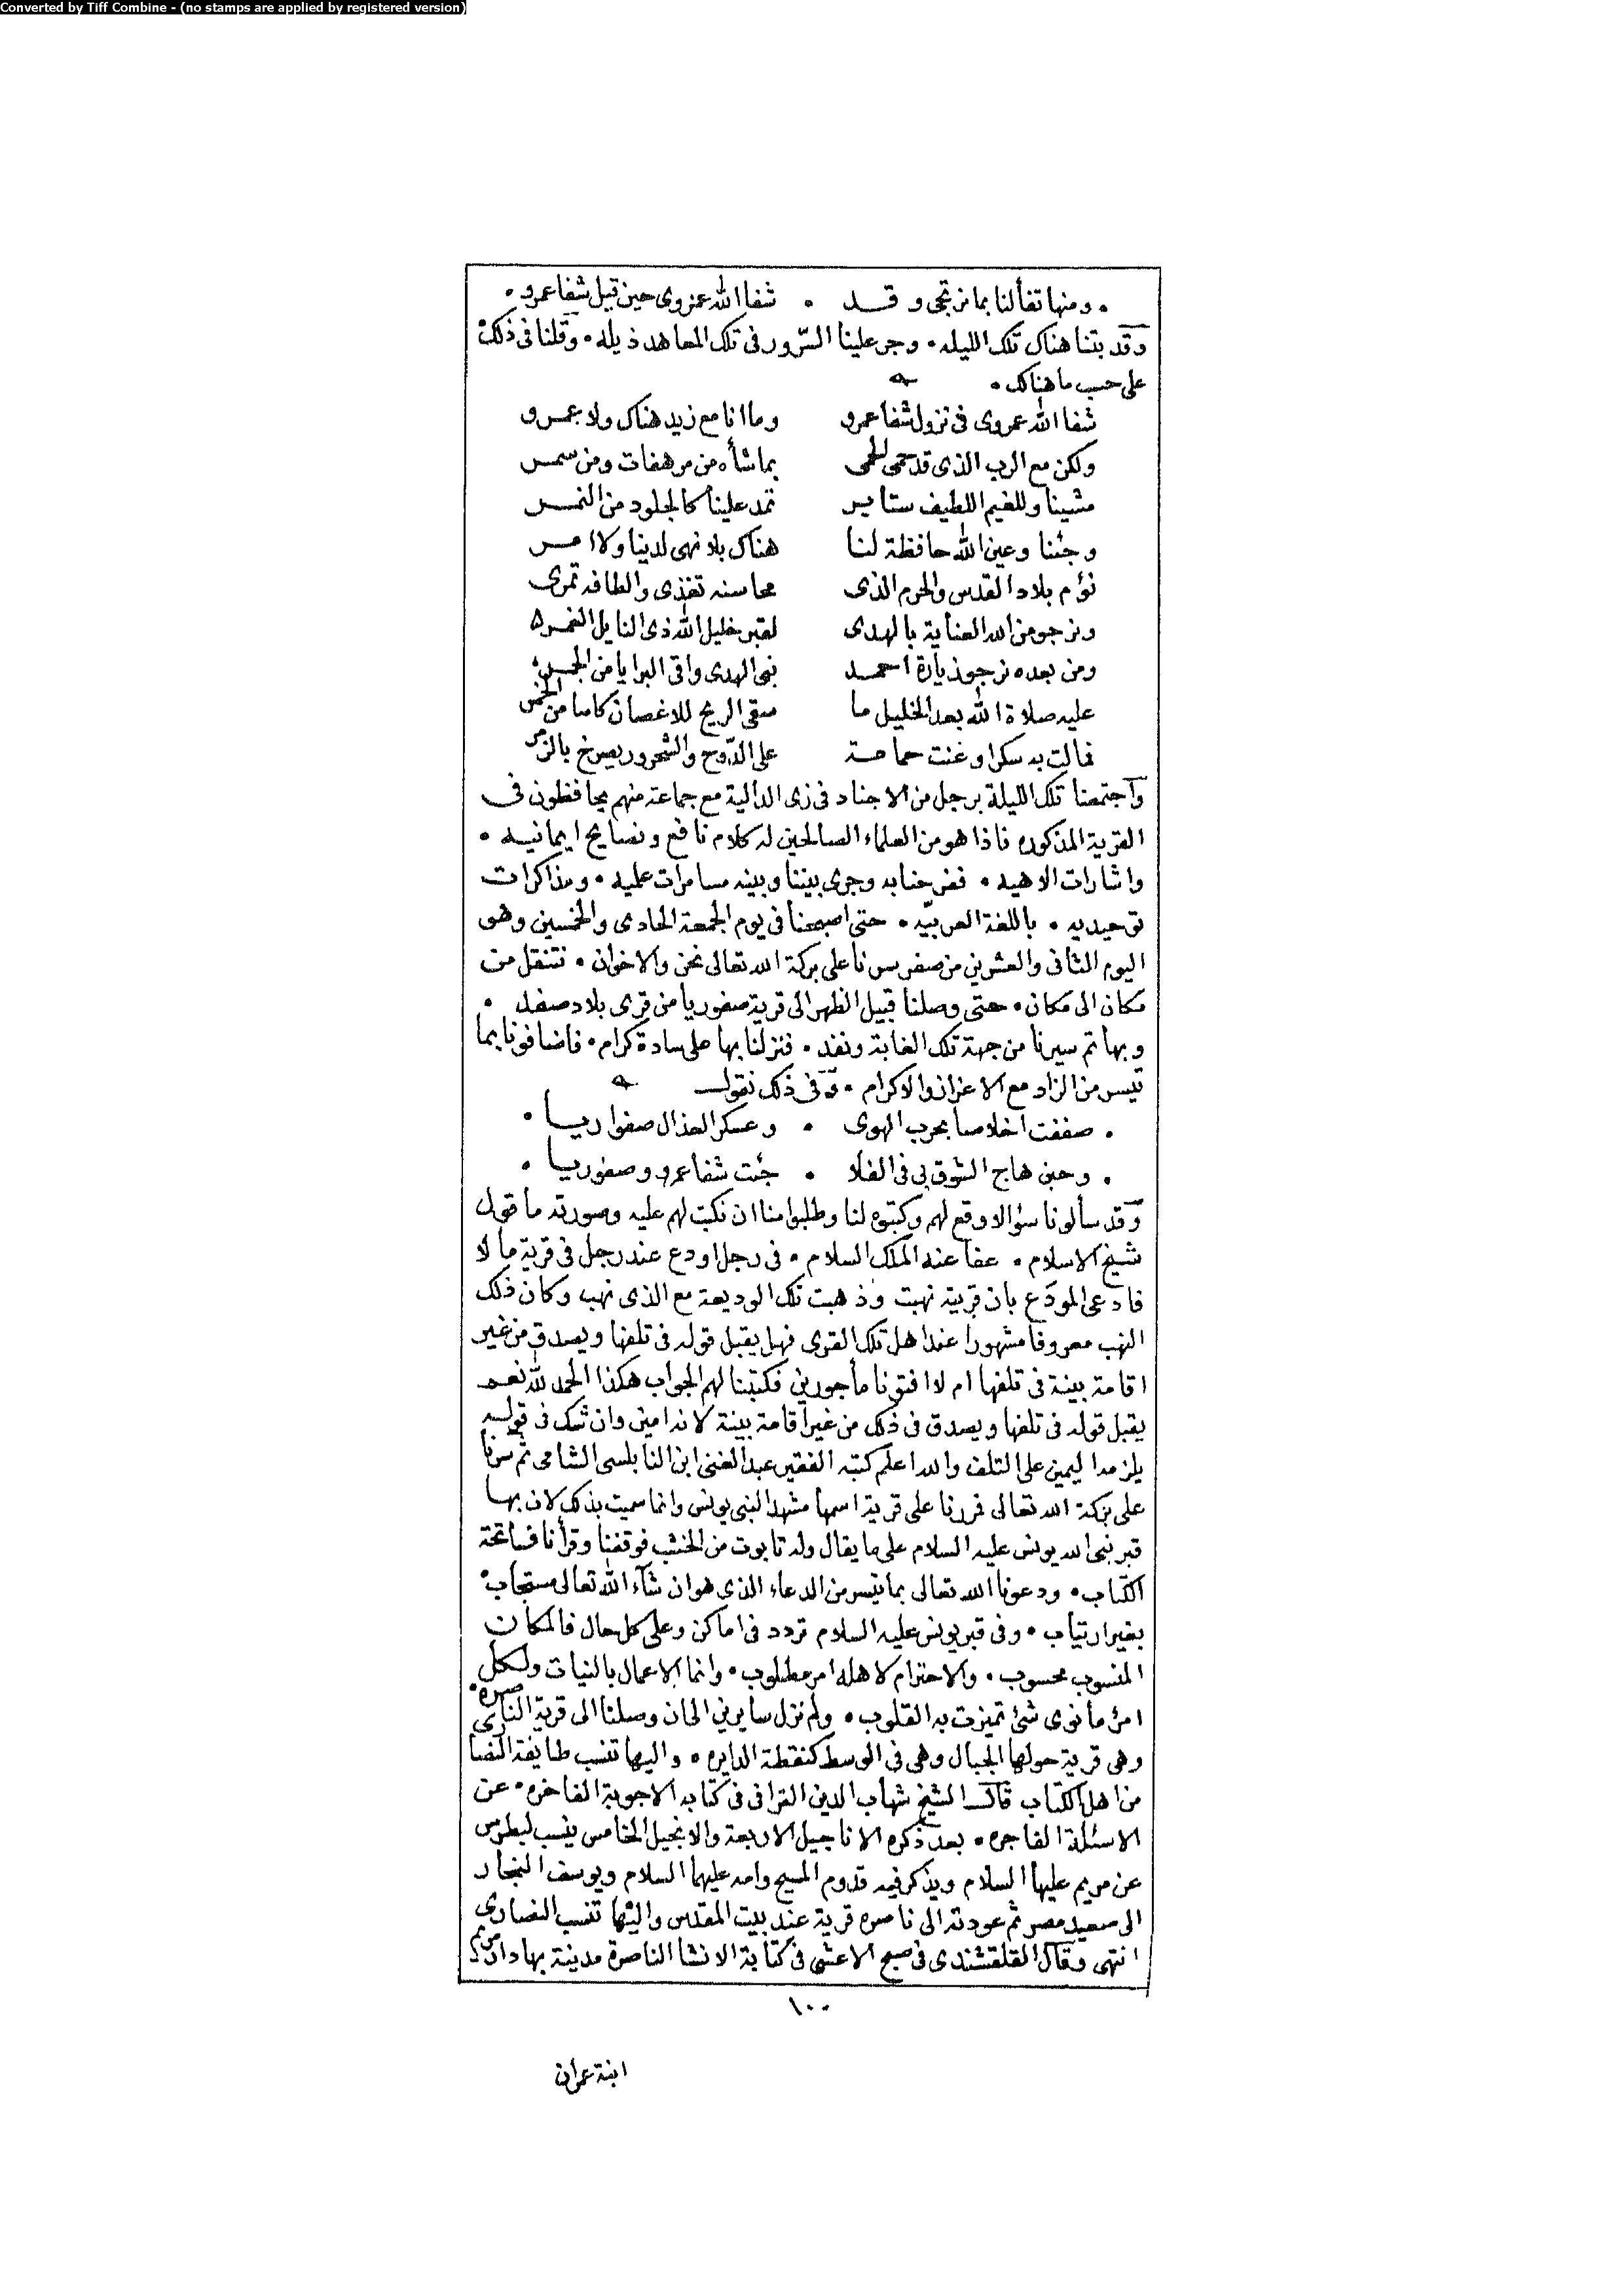 Converted by Tiff Combine - (no stamps are applied by registered version)
• ومنها تفألنا بما نرتجى وقد • شفا الله عمروى حين قيل شفا عمرو •
وقد بتنا هناك تلك الليله • وجر علينا السّرور فى تلك المعاهد ذيله • وقلنا فى ذلك
على حسب ما هنالك •
شفا الله عمروى فى نزول شفا عمرو وما انا مع زيد هناك ولا عمرو
ولكن مع الرب الذى قد حمى الحمى بما شأه من مرهفات ومن سمر
مشينا وللغيم اللطيف ستاير تمد علينا كالجلود من النمر
وجئنا وعين الله حافظة لنا هناك بلا نهى لدينا ولا امر
نؤم بلاد القدس والحرم الذى محاسنه تغذى والطافه تمرى
ونرجو من الله العناية بالهدى لقبر خليل الله ذى النايل الغمر
ومن بعده نرجو زيارة احمد نبى الهدى واقى البرايا من الجمر
عليه صلاة الله بعد الخليل ما سقى الريح للاغصان كاسا من الخمر
فمالت به سكرا وغنت حمامة على الدّوح والشحرور يصرخ بالزمر
وآجتمعنا تلك الليلة برجل من الاجناد فى زى الدالية مع جماعة منهم يحافظون فى
القرية المذكوره فاذا هو من العلماء الصالحين له كلام نافع ونصايح ايمانيه •
واشارات الاهيه • ففرحنا به وجرى بيننا وبينه مسامرات علميه • ومذاكرات
توحيديه • باللغة العربيّه • حتى اصبحنا فى يوم الجمعة الحادى والخمسين وهو
اليوم الثانى والعشرين من صفر سرنا على بركة الله تعالى نحن والاخوان • نتنقل من
مكان الى مكان • حتى وصلنا قبيل الظهر الى قرية صفوريا من قرى بلاد صفد •
وبها تم سيرنا من جهة تلك الغابة ونفد • فنزلنا بها على سادة كرام • فاضافونا بما
تيسر من الزاد مع الاعزاز والاكرام • وفى ذلك نقول
• صففت اخلاصا بحرب الهوى • وعسكر العذال صفوا ريا •
• وحين هاج الشوق بى فى الفلا • جئت شفا عمرو وصفوريا •
وقد سألونا سؤالا وقع لهم وكتبوه لنا وطلبوا منا ان نكتب لهم عليه وصورته ما قول
شيخ الاسلام • عفا عنه الملك السلام • فى رجل اودع عند رجل فى قرية مالا
فادعى المودَع بان قريته نهبت وذهبت تلك الوديعة مع الذى نهب وكان ذلك
النهب معروفا مشهورا عند اهل تلك القرى فهل يقبل قوله فى تلفها ويصدق من غير
اقامة بينة فى تلفها ام لا افتونا مأجورين فكتبنا لهم الجواب هكذا الحمد لله نعم
يقبل قوله فى تلفها ويصدق فى ذلك من غير اقامة بينة لانه امين وان شك فى قوله
يلزمه اليمين على التلف والله اعلم كتبه الفقير عبد الغنى ابن النابلسى الشامى ثم سرنا
على بركة الله تعالى فمررنا على قرية اسمها مشهد النبى يونس وانما سميت بذلك لان بها
قبر نبى الله يونس عليه السلام على ما يقال وله تابوت من الخشب فوقفنا وقرأنا فاتحة
الكتاب • ودعونا الله تعالى بما تيسر من الدعاء الذى هو ان شآء الله تعالى مستجاب •
بغير ارتياب • وفى قبر يونس عليه السلام تردد فى اماكن وعلى كل حال فالمكان
المنسوب محسوب • والاحترام لاهله امر مطلوب • وانما الاعمال بالنيات ولكل
امرئ ما نوى شئ تميزت به القلوب • ولم نزل سايرين الى ان وصلنا الى قرية الناصره •
وهى قرية حولها الجبال وهى فى الوسط كنقطة الدايره • واليها تنسب طايفة النصارى
من اهل الكتاب قال الشيخ شهاب الدين القرافى فى كتابه الاجوبة الفاخره • عن
الاسئلة الفاجره • بعد ذكره الاناجيل الاربعة والانجيل الخامس ينسب لبطرس
عن مريم عليها السلام ويذكر فيه قدوم المسيح وامه عليهما السلام ويوسف النجار
الى صعيد مصر ثم عودته الى ناصره قرية عند بيت المقدس واليها تنسب النصارى
انتهى وقال القلقشندى فى صبح الاعشى فى كتابة الانشا الناصرة مدينة بها دار مريم
١٠٠
ابنة عمران